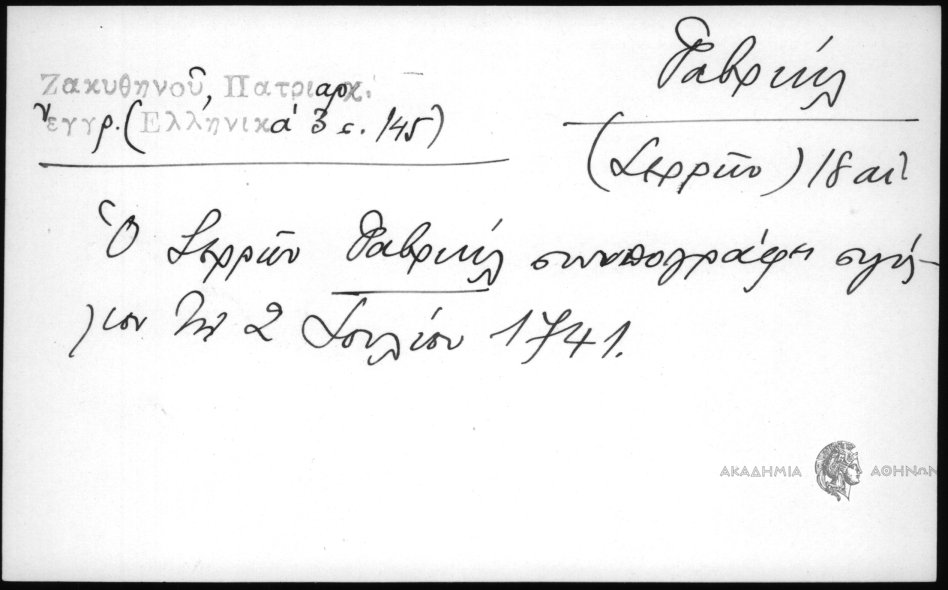 Ζακυθηνοῦ, Πατριαρχ.
ἔγγρ. (Ἑλληνικά 3 σ. 145)
Γαβριήλ
(Σερρῶν) 18 αἰ
Ὁ Σερρῶν Γαβριήλ συνυπογράφει σιγίλ-
λιον τῇ 2 Ἰουλίου 1741.
ΑΚΑΔΗΜΙΑ ΑΘΗΝΩΝ